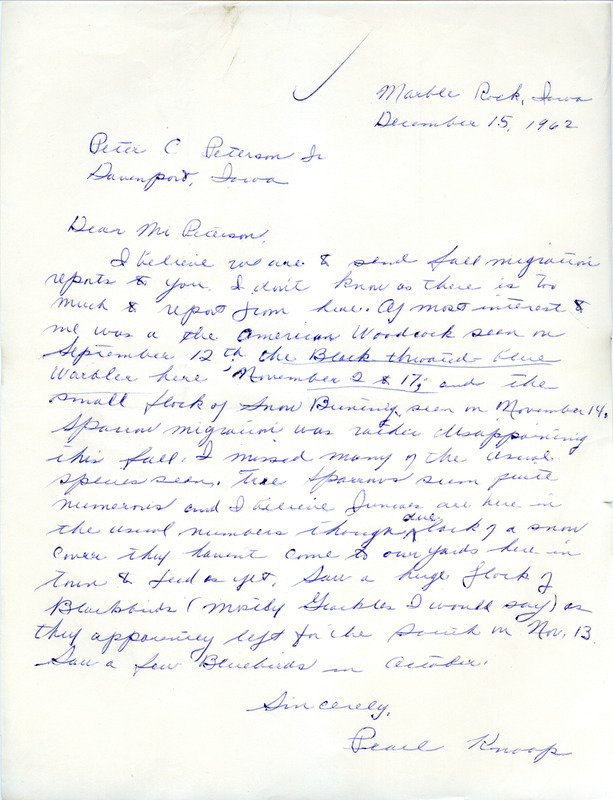 Marble Rock, Iowa
December 15, 1962
Peter C Peterson Jr
Davenport, Iowa
Dear Mr Peterson,
I believe we are to send fall migration
reports to you. I don't know as there is too
much to report from here. Of most interest to
me was a the American Woodcock seen on
September 12th the Black throated-blue
Warbler here November 2 to 17; and the
small flock of Snow Bunting seen on November 14.
Sparrow migration was rather disappoining
this fall. I missed many of the usual
species seen. Tree Sparrows seem quite
numerous and I believe Juncos are here in
the usual numbers though due lack of a snow
cover they havent come to our yards here in
town to feed as yet. Saw a huge flock of
Blackbirds (mostly Grackles I would say) as
they apparently left for the south on Nov. 13.
Saw a few Bluebirds in October.
Sincerely,
Pearl Knoop